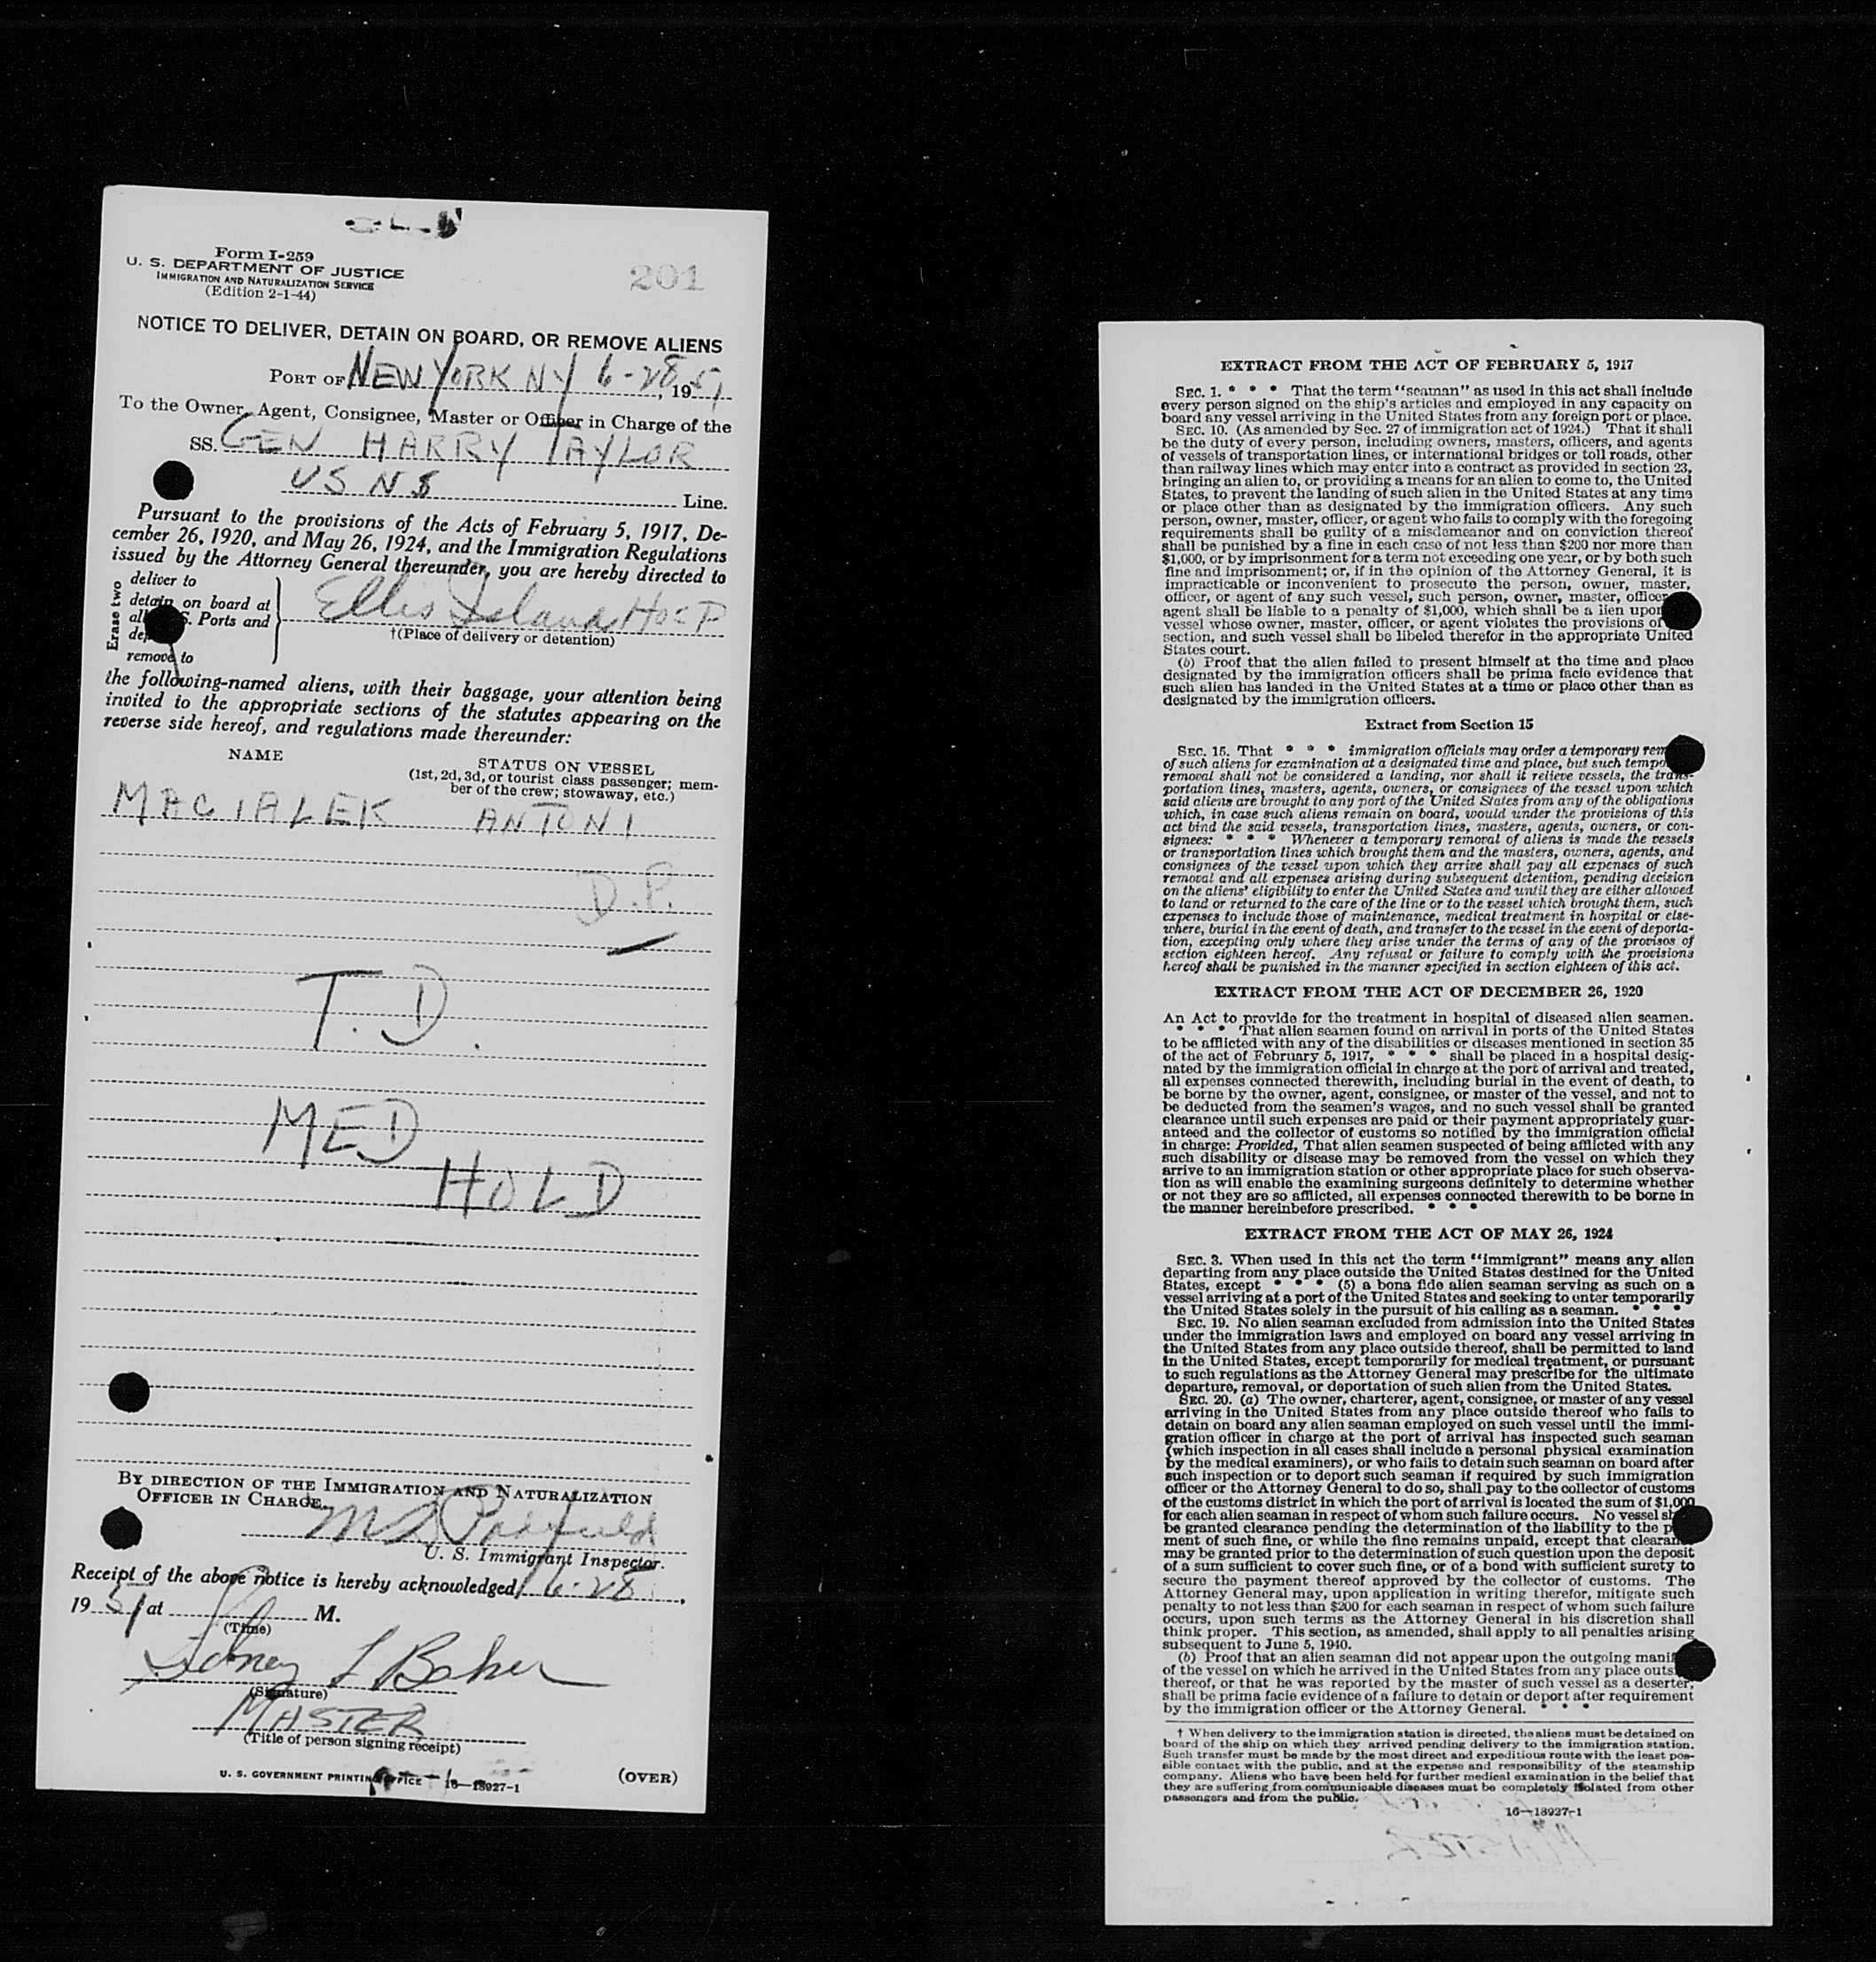 Form I-259
U. S. DEPARTMENT OF JUSTICE
IMMIGRATION AND NATURALIZATION SERVICE
(Edition 2-1-44)
201
NOTICE TO DELIVER, DETAIN ON BOARD, OR REMOVE ALIENS
PORT OF NEW YORK NY 6-28, 1951
To the Owner, Agent, Consignee, Master or Officer in Charge of the
SS. GEN HARRY TAYLOR
USNS Line.
Pursuant to the provisions of the Acts of February 5, 1917, De-
cember 26, 1920, and May 26, 1924, and the Immigration Regulations
issued by the Attorney General thereunder, you are hereby directed to
Erase two
deliver to
detain on board at
all S. Ports and
remove to
Ellis Island Hosp
†(Place of delivery or detention)
the following-named aliens, with their baggage, your attention being
invited to the appropriate sections of the statutes appearing on the
reverse side hereof, and regulations made thereunder:
NAME
STATUS ON VESSEL
(1st, 2d, 3d, or tourist class passenger; mem-
ber of the crew; stowaway, etc.)
MACIALEK ANTONI
D.P.
T.D.
MED
HOLD
BY DIRECTION OF THE IMMIGRATION AND NATURALIZATION
OFFICER IN CHARGE.
U. S. Immigrant Inspector.
Receipt of the above notice is hereby acknowledged 6-28,
1951 at M.
(Time)
Sidney L Baker
(Signature)
MASTER
(Title of person signing receipt)
U. S. GOVERNMENT PRINTING OFFICE 16—18927-1
(OVER)
EXTRACT FROM THE ACT OF FEBRUARY 5, 1917
SEC. 1. * * * That the term "seaman" as used in this act shall include
every person signed on the ship's articles and employed in any capacity on
board any vessel arriving in the United States from any foreign port or place.
SEC. 10. (As amended by Sec. 27 of immigration act of 1924.) That it shall
be the duty of every person, including owners, masters, officers, and agents
of vessels of transportation lines, or international bridges or toll roads, other
than railway lines which may enter into a contract as provided in section 23,
bringing an alien to, or providing a means for an alien to come to, the United
States, to prevent the landing of such alien in the United States at any time
or place other than as designated by the immigration officers. Any such
person, owner, master, officer, or agent who fails to comply with the foregoing
requirements shall be guilty of a misdemeanor and on conviction thereof
shall be punished by a fine in each case of not less than $200 nor more than
$1,000, or by imprisonment for a term not exceeding one year, or by both such
fine and imprisonment; or, if in the opinion of the Attorney General, it is
impracticable or inconvenient to prosecute the person, owner, master,
officer, or agent of any such vessel, such person, owner, master, officer
agent shall be liable to a penalty of $1,000, which shall be a lien upon
vessel whose owner, master, officer, or agent violates the provisions of
section, and such vessel shall be libeled therefor in the appropriate United
States court.
(b) Proof that the alien failed to present himself at the time and place
designated by the immigration officers shall be prima facie evidence that
such alien has landed in the United States at a time or place other than as
designated by the immigration officers.
Extract from Section 15
SEC. 15. That * * * immigration officials may order a temporary rem
of such aliens for examination at a designated time and place, but such tempo
removal shall not be considered a landing, nor shall it relieve vessels, the trans-
portation lines, masters, agents, owners, or consignees of the vessel upon which
said aliens are brought to any port of the United States from any of the obligations
which, in case such aliens remain on board, would under the provisions of this
act bind the said vessels, transportation lines, masters, agents, owners, or con-
signees: * * * Whenever a temporary removal of aliens is made the vessels
or transportation lines which brought them and the masters, owners, agents, and
consignees of the vessel upon which they arrive shall pay all expenses of such
removal and all expenses arising during subsequent detention, pending decision
on the aliens' eligibility to enter the United States and until they are either allowed
to land or returned to the care of the line or to the vessel which brought them, such
expenses to include those of maintenance, medical treatment in hospital or else-
where, burial in the event of death, and transfer to the vessel in the event of deporta-
tion, excepting only where they arise under the terms of any of the provisos of
section eighteen hereof. Any refusal or failure to comply with the provisions
hereof shall be punished in the manner specified in section eighteen of this act.
EXTRACT FROM THE ACT OF DECEMBER 26, 1920
An Act to provide for the treatment in hospital of diseased alien seamen.
* * * That alien seamen found on arrival in ports of the United States
to be afflicted with any of the disabilities or diseases mentioned in section 35
of the act of February 5, 1917, * * * shall be placed in a hospital desig-
nated by the immigration official in charge at the port of arrival and treated,
all expenses connected therewith, including burial in the event of death, to
be borne by the owner, agent, consignee, or master of the vessel, and not to
be deducted from the seamen's wages, and no such vessel shall be granted
clearance until such expenses are paid or their payment appropriately guar-
anteed and the collector of customs so notified by the immigration official
in charge: Provided, That alien seamen suspected of being afflicted with any
such disability or disease may be removed from the vessel on which they
arrive to an immigration station or other appropriate place for such observa-
tion as will enable the examining surgeons definitely to determine whether
or not they are so afflicted, all expenses connected therewith to be borne in
the manner hereinbefore prescribed. * * *
EXTRACT FROM THE ACT OF MAY 26, 1924
SEC. 3. When used in this act the term "immigrant" means any alien
departing from any place outside the United States destined for the United
States, except * * * (5) a bona fide alien seaman serving as such on a
vessel arriving at a port of the United States and seeking to enter temporarily
the United States solely in the pursuit of his calling as a seaman. * * *
SEC. 19. No alien seaman excluded from admission into the United States
under the immigration laws and employed on board any vessel arriving in
the United States from any place outside thereof, shall be permitted to land
in the United States, except temporarily for medical treatment, or pursuant
to such regulations as the Attorney General may prescribe for the ultimate
departure, removal, or deportation of such alien from the United States.
SEC. 20. (a) The owner, charterer, agent, consignee, or master of any vessel
arriving in the United States from any place outside thereof who fails to
detain on board any alien seaman employed on such vessel until the immi-
gration officer in charge at the port of arrival has inspected such seaman
(which inspection in all cases shall include a personal physical examination
by the medical examiners), or who fails to detain such seaman on board after
such inspection or to deport such seaman if required by such immigration
officer or the Attorney General to do so, shall pay to the collector of customs
of the customs district in which the port of arrival is located the sum of $1,000
for each alien seaman in respect of whom such failure occurs. No vessel sh
be granted clearance pending the determination of the liability to the p
ment of such fine, or while the fine remains unpaid, except that clearance
may be granted prior to the determination of such question upon the deposit
of a sum sufficient to cover such fine, or of a bond with sufficient surety to
secure the payment thereof approved by the collector of customs. The
Attorney General may, upon application in writing therefor, mitigate such
penalty to not less than $200 for each seaman in respect of whom such failure
occurs, upon such terms as the Attorney General in his discretion shall
think proper. This section, as amended, shall apply to all penalties arising
subsequent to June 5, 1940.
(b) Proof that an alien seaman did not appear upon the outgoing mani
of the vessel on which he arrived in the United States from any place outs
thereof, or that he was reported by the master of such vessel as a deserter,
shall be prima facie evidence of a failure to detain or deport after requirement
by the immigration officer or the Attorney General. * * *
† When delivery to the immigration station is directed, the aliens must be detained on
board of the ship on which they arrived pending delivery to the immigration station.
Such transfer must be made by the most direct and expeditious route with the least pos-
sible contact with the public, and at the expense and responsibility of the steamship
company. Aliens who have been held for further medical examination in the belief that
they are suffering from communicable diseases must be completely isolated from other
passengers and from the public.
16—18927-1